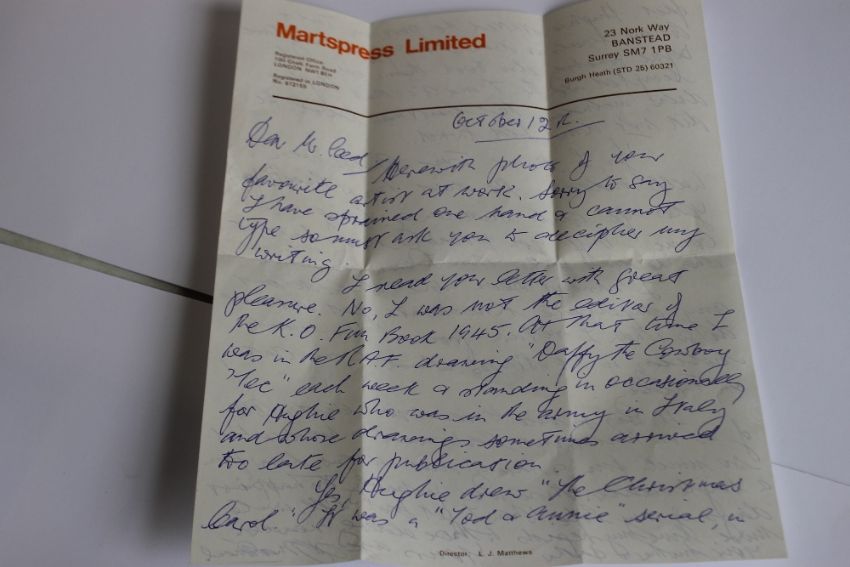 Martspress Limited
Registered Office:
100 Chalk Farm Road
LONDON NW1 8EH
Registered in LONDON
No. 972155
23 Nork Way
BANSTEAD
Surrey SM7 1PB
Burgh Heath (STD 25) 60321
October 12th.
Dear Mr. Herewith photo of your
favourite artist at work. Sorry to say
I have sprained one hand & cannot
type so must ask you to decipher my
writing.
I read your letter with great
pleasure. No, I was not the editor of
the K.O. Fun Book 1945. At that time I
was in the RAF. drawing "Daffy the Cowboy
'Tec" each week & standing in occasionally
for Hughie who was in the army in Italy
and whose drawings sometimes arrived
too late for publication.
Yes, Hughie drew "The Christmas
Carol." It was a "Tod & Annie" serial, in
Director: L. J. Matthews